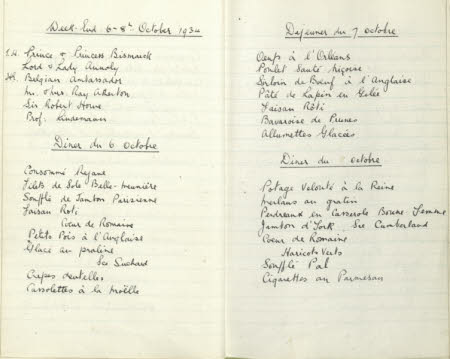 Week-End 6-8th October 1934
Prince & Princess Bismarck
Lord & Lady Annaly
Belgian Ambassador
Mr. & Mrs. Ray Atherton
Sir Robert Horne
Prof. Lindemann
Diner du 6 Octobre
Consommé Rejane
Filets de Sole Belle-Meunière
Soufflé de Jambon Parisienne
Faisan Roti
Coeur de Romaine
Petits Pois à l'Anglaise
Glacé au praliné
Sce Suchard
Crêpes dentelles
Cassolettes à la Moëlle
Dejeuner du 7 octobre
Oeufs à l'Orléans
Poulet Sauté Niçoise
Sirloin de Boeuf à l'Anglaise
Pâté de Lapin en Gelée
Faisan Rôti
Bavaroise de Prunes
Allumettes Glacées
Diner du octobre
Potage Velouté à la Reine
Merlans au gratin
Perdreaux en Casserole Bonne-Femme
Jambon d'York Sce Cumberland
Coeur de Romaine
Haricots Verts
Soufflé Pal
Cigarettes au Parmesan